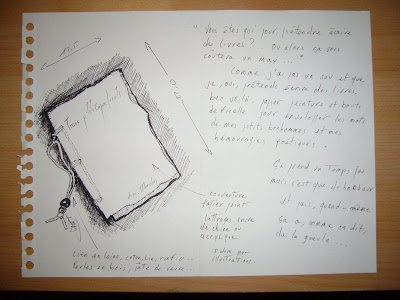 " Vous êtes qui pour prétendre écrire
de livres ? Ou alors ça vous
coûtera un max... "
Comme j'ai pas un sou et que
je, oui, prétends écrire des livres,
ben voilà : papier peinture et bouts
de ficelle pour envelopper les mots
de mes petits bonhommes et mes
hémorragies poétiques.
Ça prend un temps fou
mais c'est que du bonheur
et puis, quand-même
ça a, comme on dit,
de la gueule...
couverture
papier peint
Lettrages encre
de chine ou
acrylique
Idem pour
illustrations.
Lien en laine, coton, lin, rafia...
Perles en bois, pâte de verre...